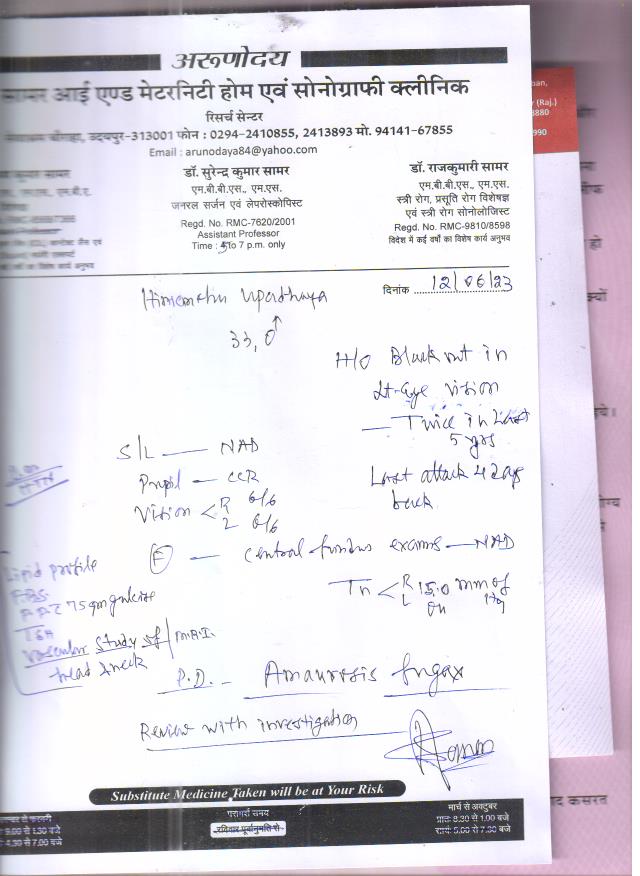 अरूणोदय
सामर आई एण्ड मेटरनिटी होम एवं सोनोग्राफी क्लीनिक
रिसर्च सेन्टर
उदयपुर-313001 फोन : 0294-2410855, 2413893 मो. 94141-67855
Email : arunodaya84@yahoo.com
डॉ. सुरेन्द्र कुमार सामर
एम.बी.बी.एस., एम.एस.
जनरल सर्जन एवं लेपरोस्कोपिस्ट
Regd. No. RMC-7620/2001
Assistant Professor
Time : 5 to 7 p.m. only
डॉ. राजकुमारी सामर
एम.बी.बी.एस., एम.एस.
स्त्री रोग, प्रसूति रोग विशेषज्ञ
एवं स्त्री रोग सोनोलोजिस्ट
Regd. No. RMC-9810/8598
विदेश में कई वर्षों का विशेष कार्य अनुभव
दिनांक 12/06/23
Himanshu Upadhyaya
33,
H/O Blackout in
Lt-Eye Vision
— Twice in Last
5 yrs
Last attack 4 days
back
S/L — NAD
Pupil — CCR
Vision < R 6/6
L 6/6
F — Central fundus exams — NAD
Tn < R 15.0 mm of
L Hg
Lipid profile
FBS
75 gm glucose
Vascular Study of
head & neck
P.D. - Amaurosis fugax
Review with investigation
Substitute Medicine Taken will be at Your Risk
परामर्श समय
रविवार पूर्वानुमति से
9.00 से 1.30 बजे
4.30 से 7.00 बजे
मार्च से अक्टूबर
प्रातः 8.30 से 1.00 बजे
सायं 5.00 से 7.30 बजे
(Raj.)
3880
990
हो
क्यों
द कसरत